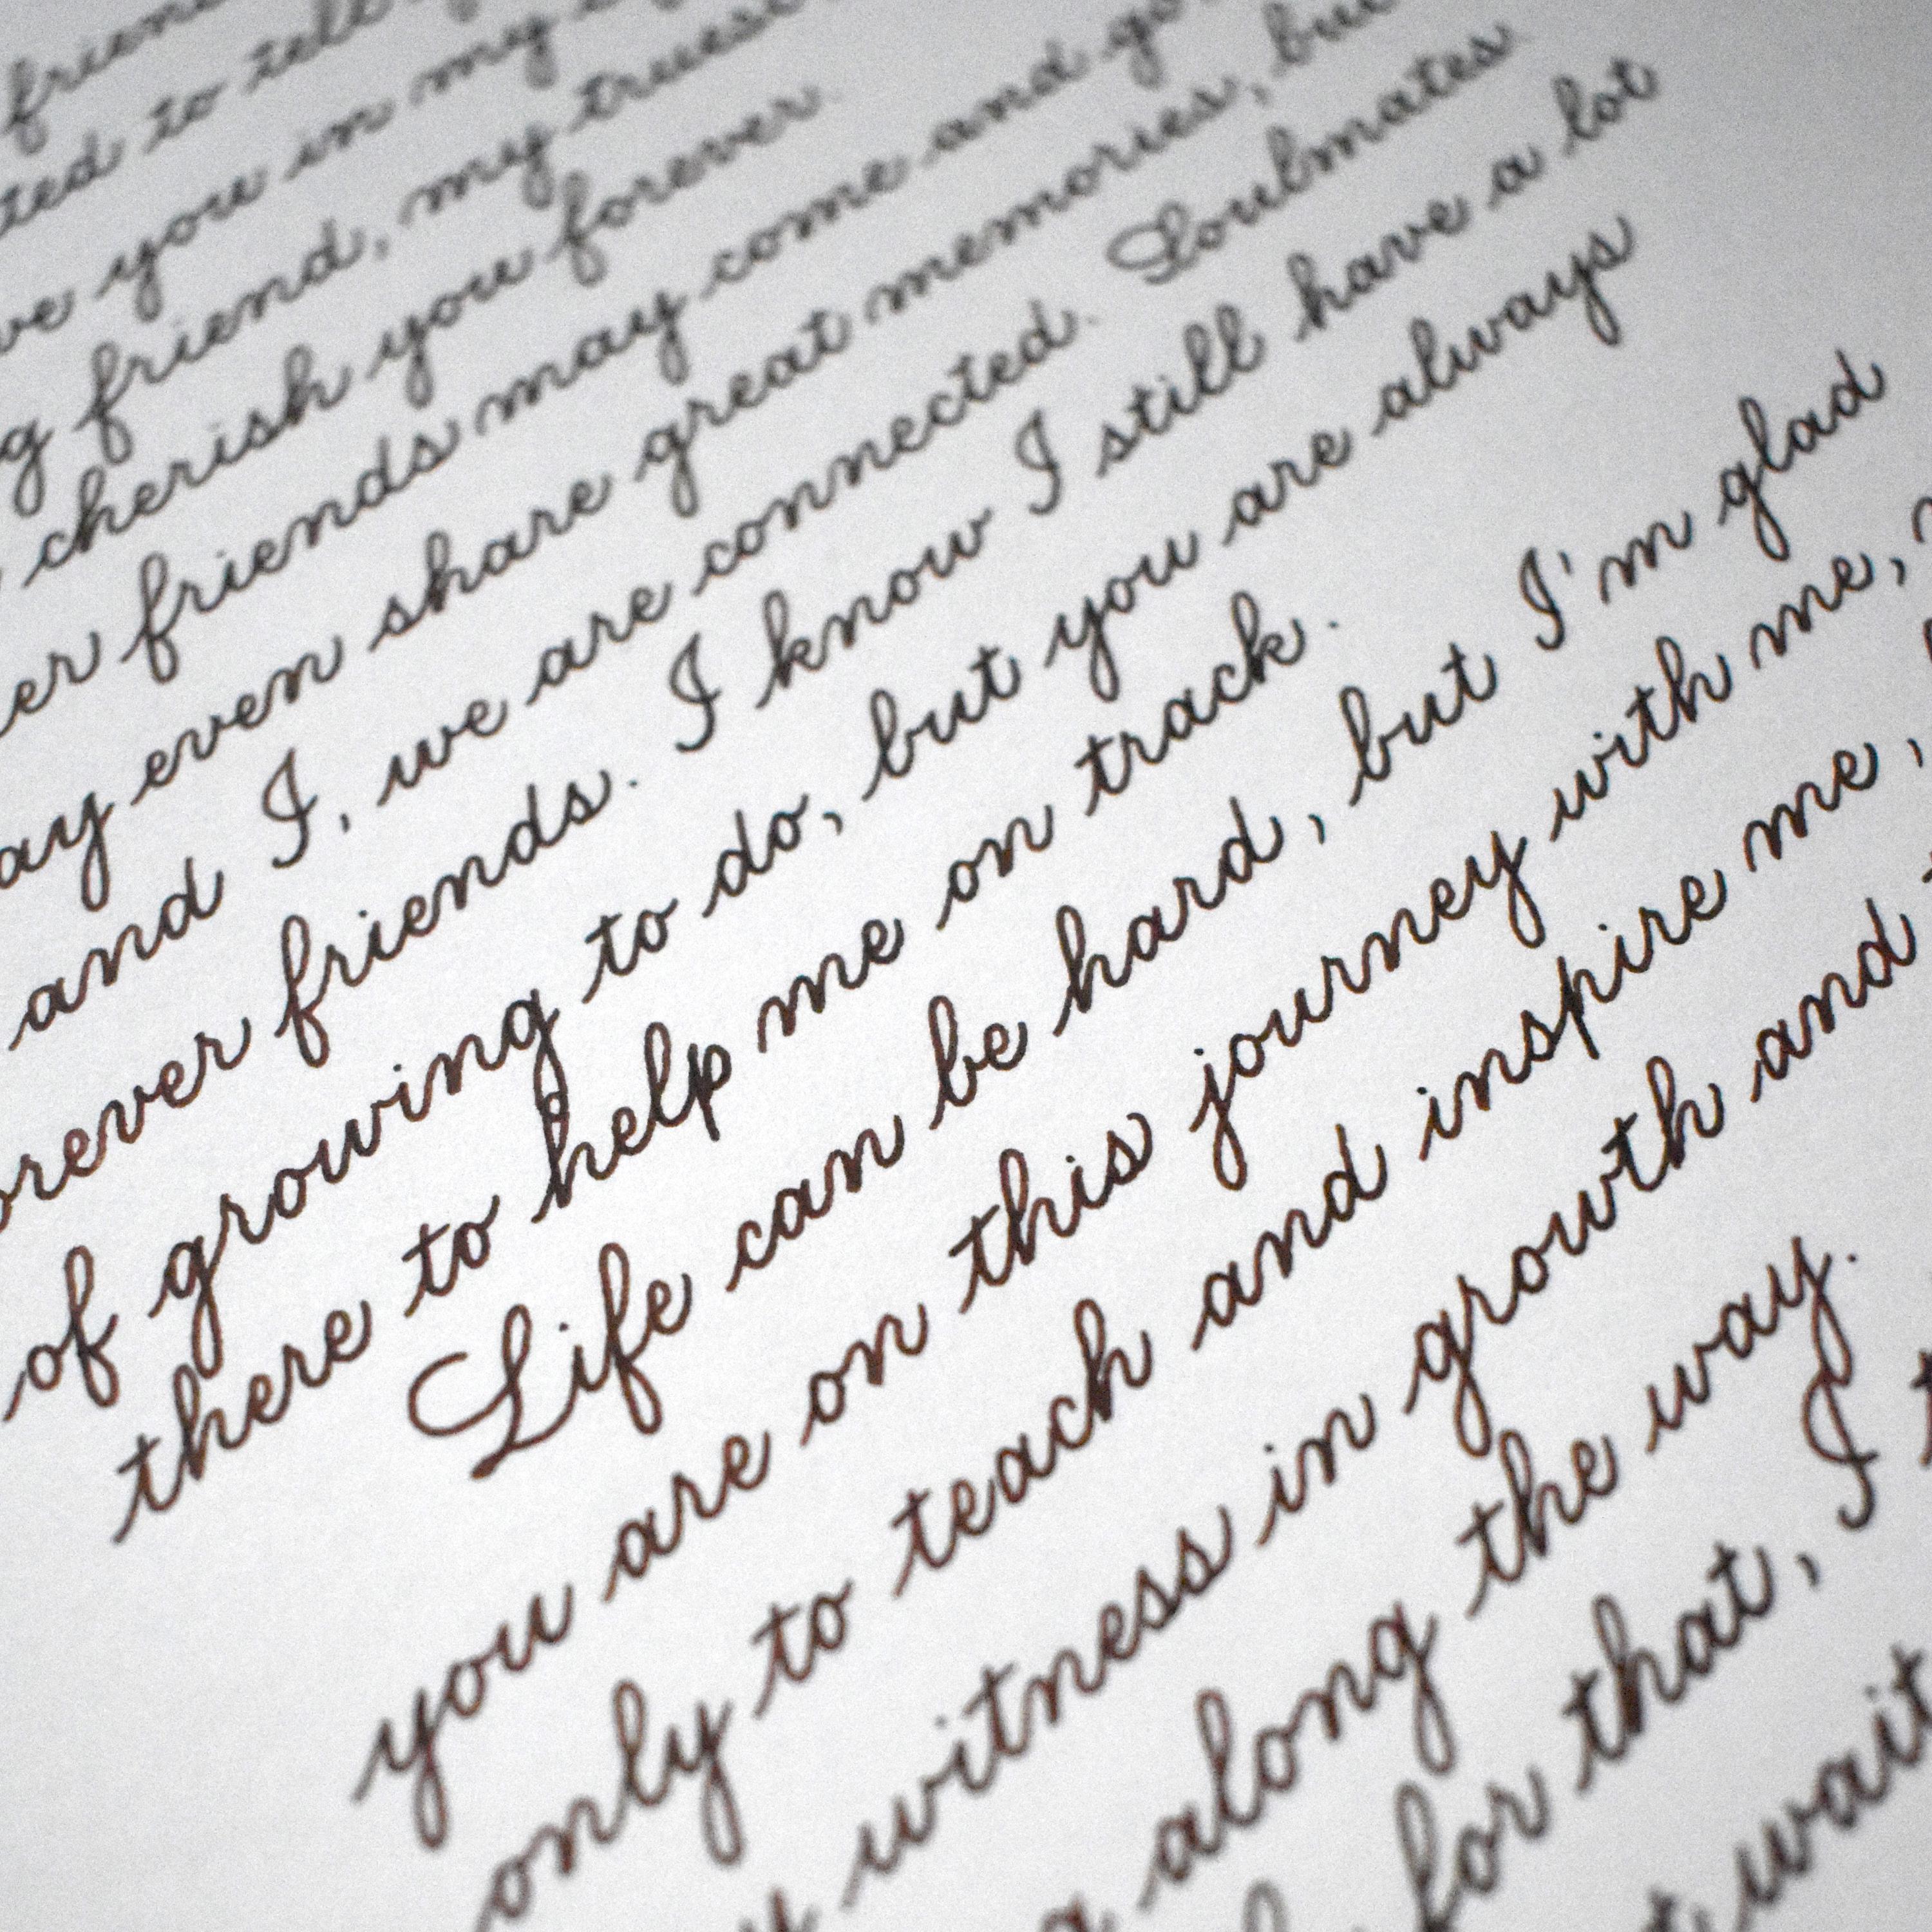 to tell
you in my
friend, my
cherish you forever.
friends may come and
even share great memories, but
and I, we are connected. Soulmates
friends. I know I still have a lot
of growing to do, but you are always
there to help me on track.
Life can be hard, but I'm glad
you are on this journey with me,
only to teach and inspire me,
witness in growth and
along the way.
for that, I
wait